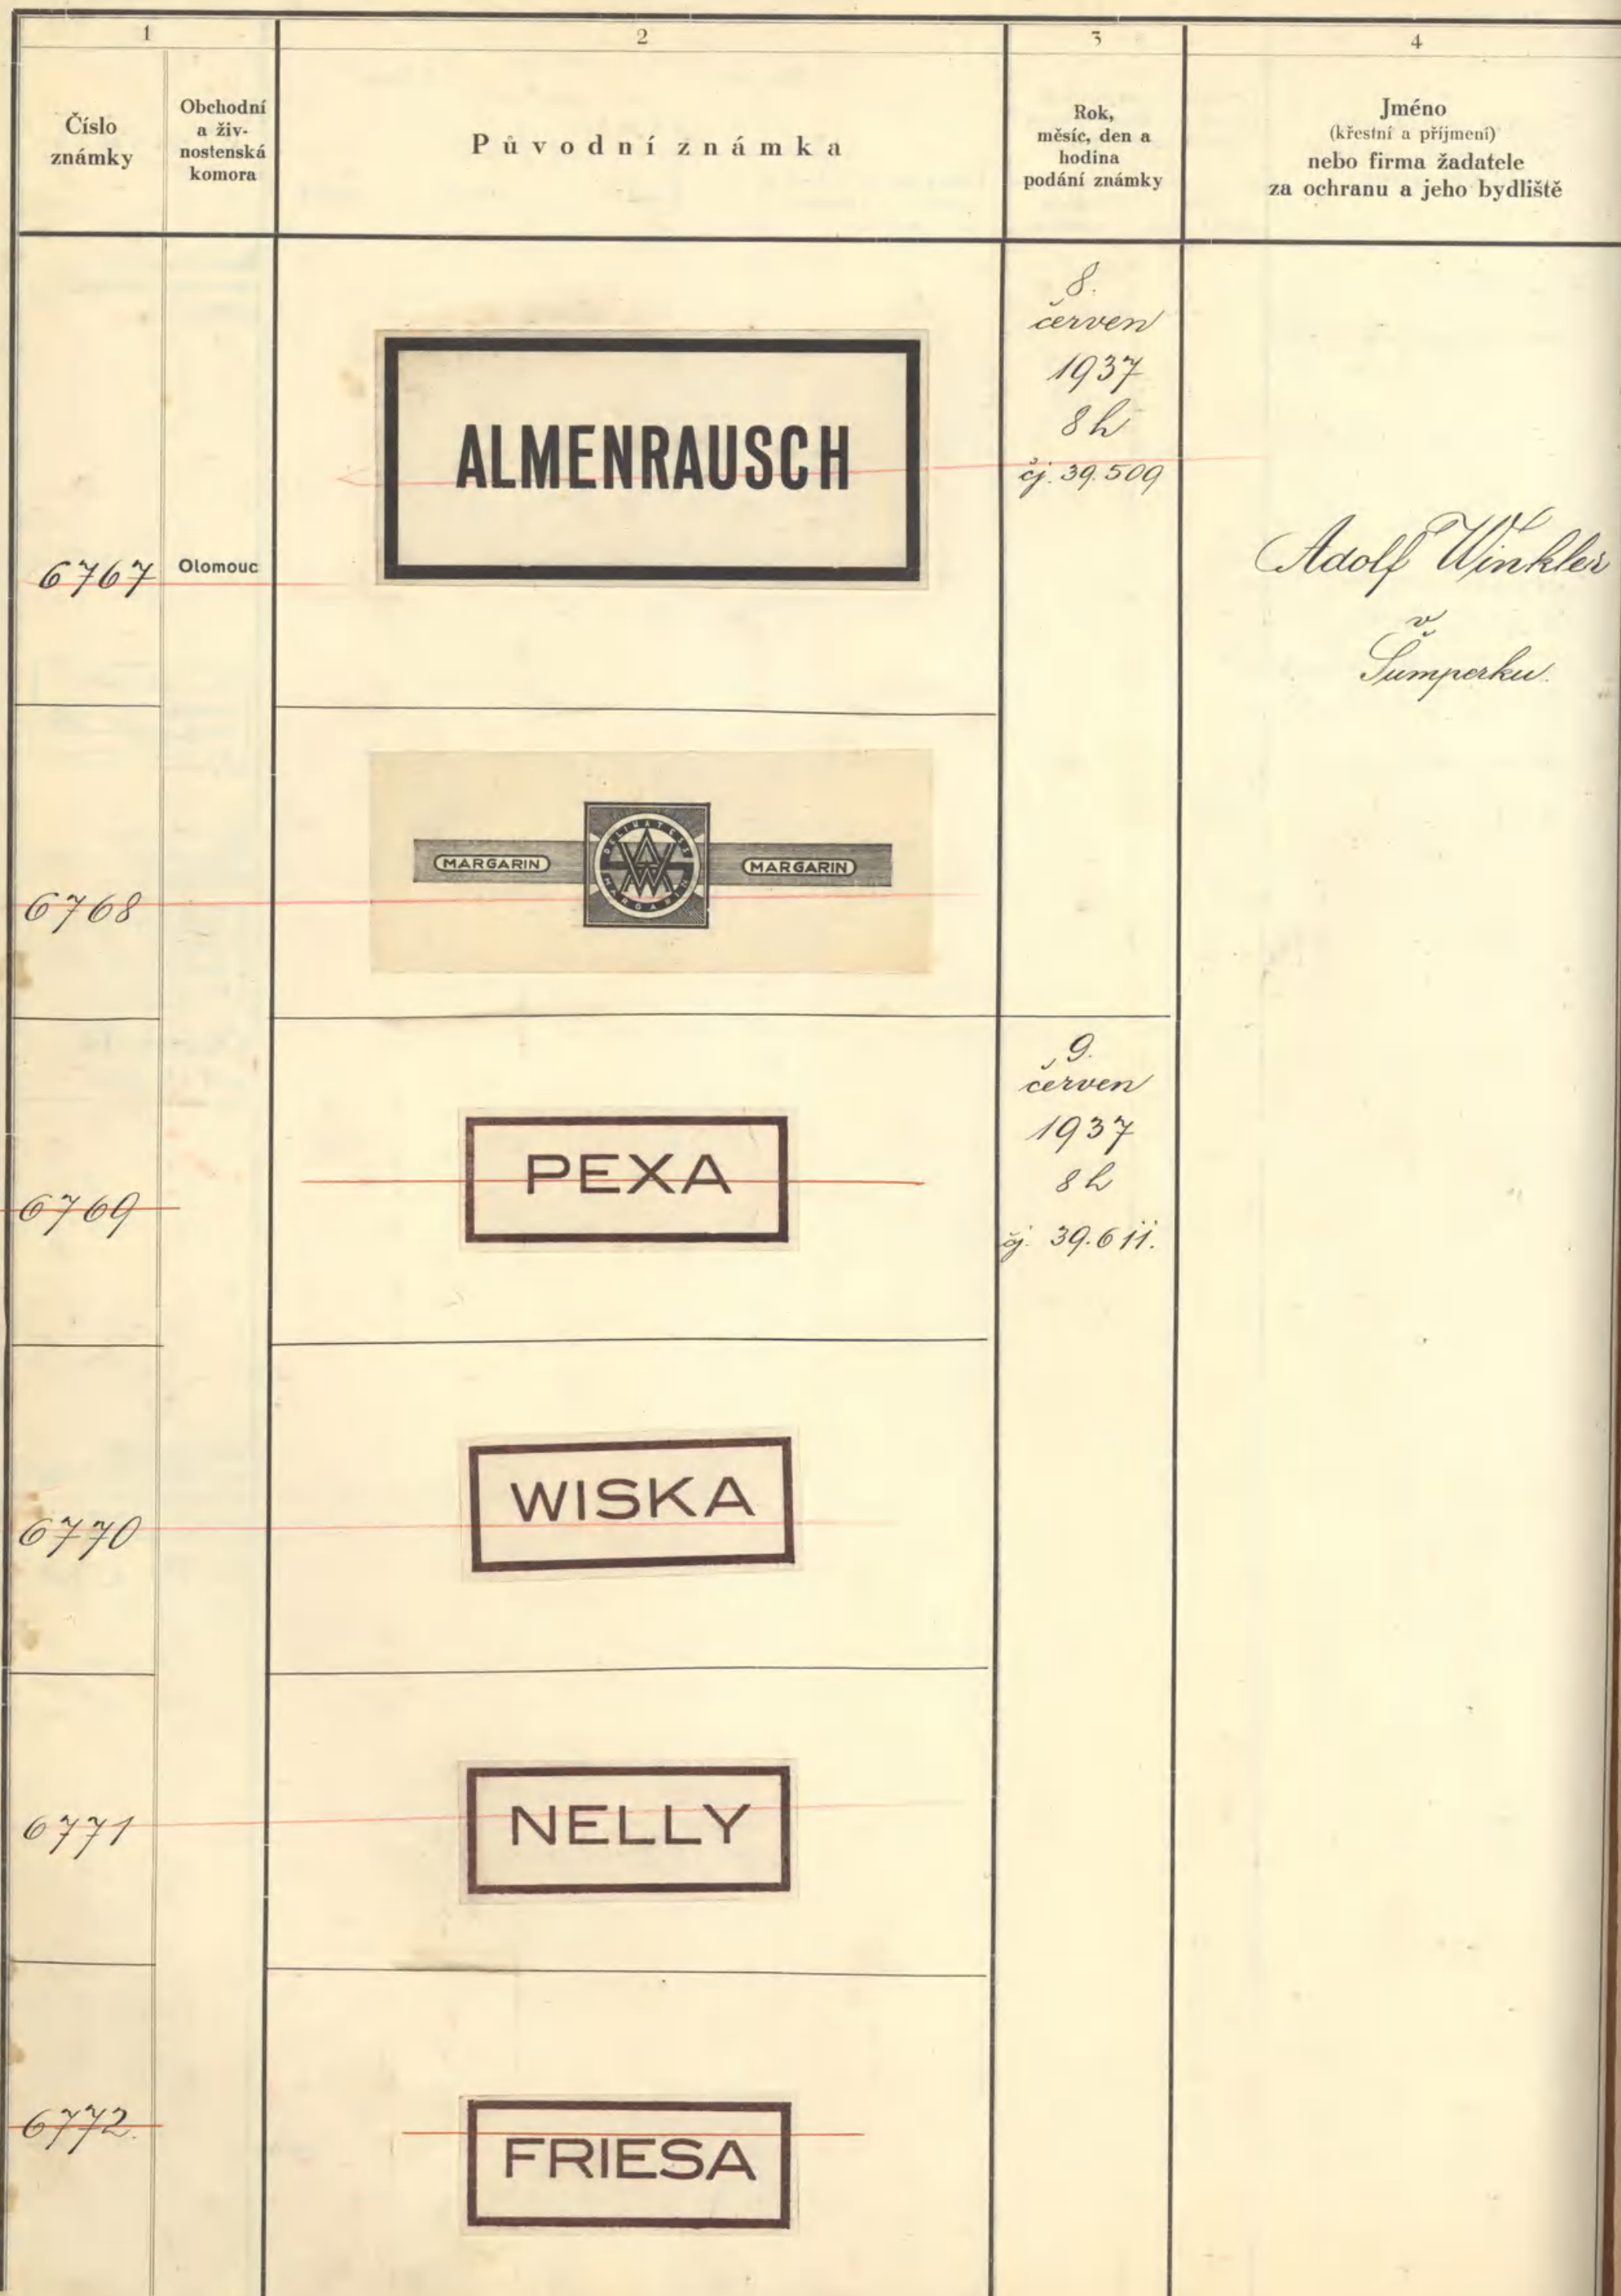 1
2
3
4
Číslo
známky
Obchodní
a živ-
nostenská
komora
Původní známka
Rok,
měsíc, den a
hodina
podání známky
Jméno
(křestní a příjmení)
nebo firma žadatele
za ochranu a jeho bydliště
6767
Olomouc
ALMENRAUSCH
8.
červen
1937
8 h
čj. 39.509
Adolf Winkler
v
Šumperku.
6768
MARGARIN
DELIKATESS
AW
MARGARIN
MARGARIN
6769
PEXA
9.
červen
1937
8 h
čj. 39.611.
6770
WISKA
6771
NELLY
6772.
FRIESA